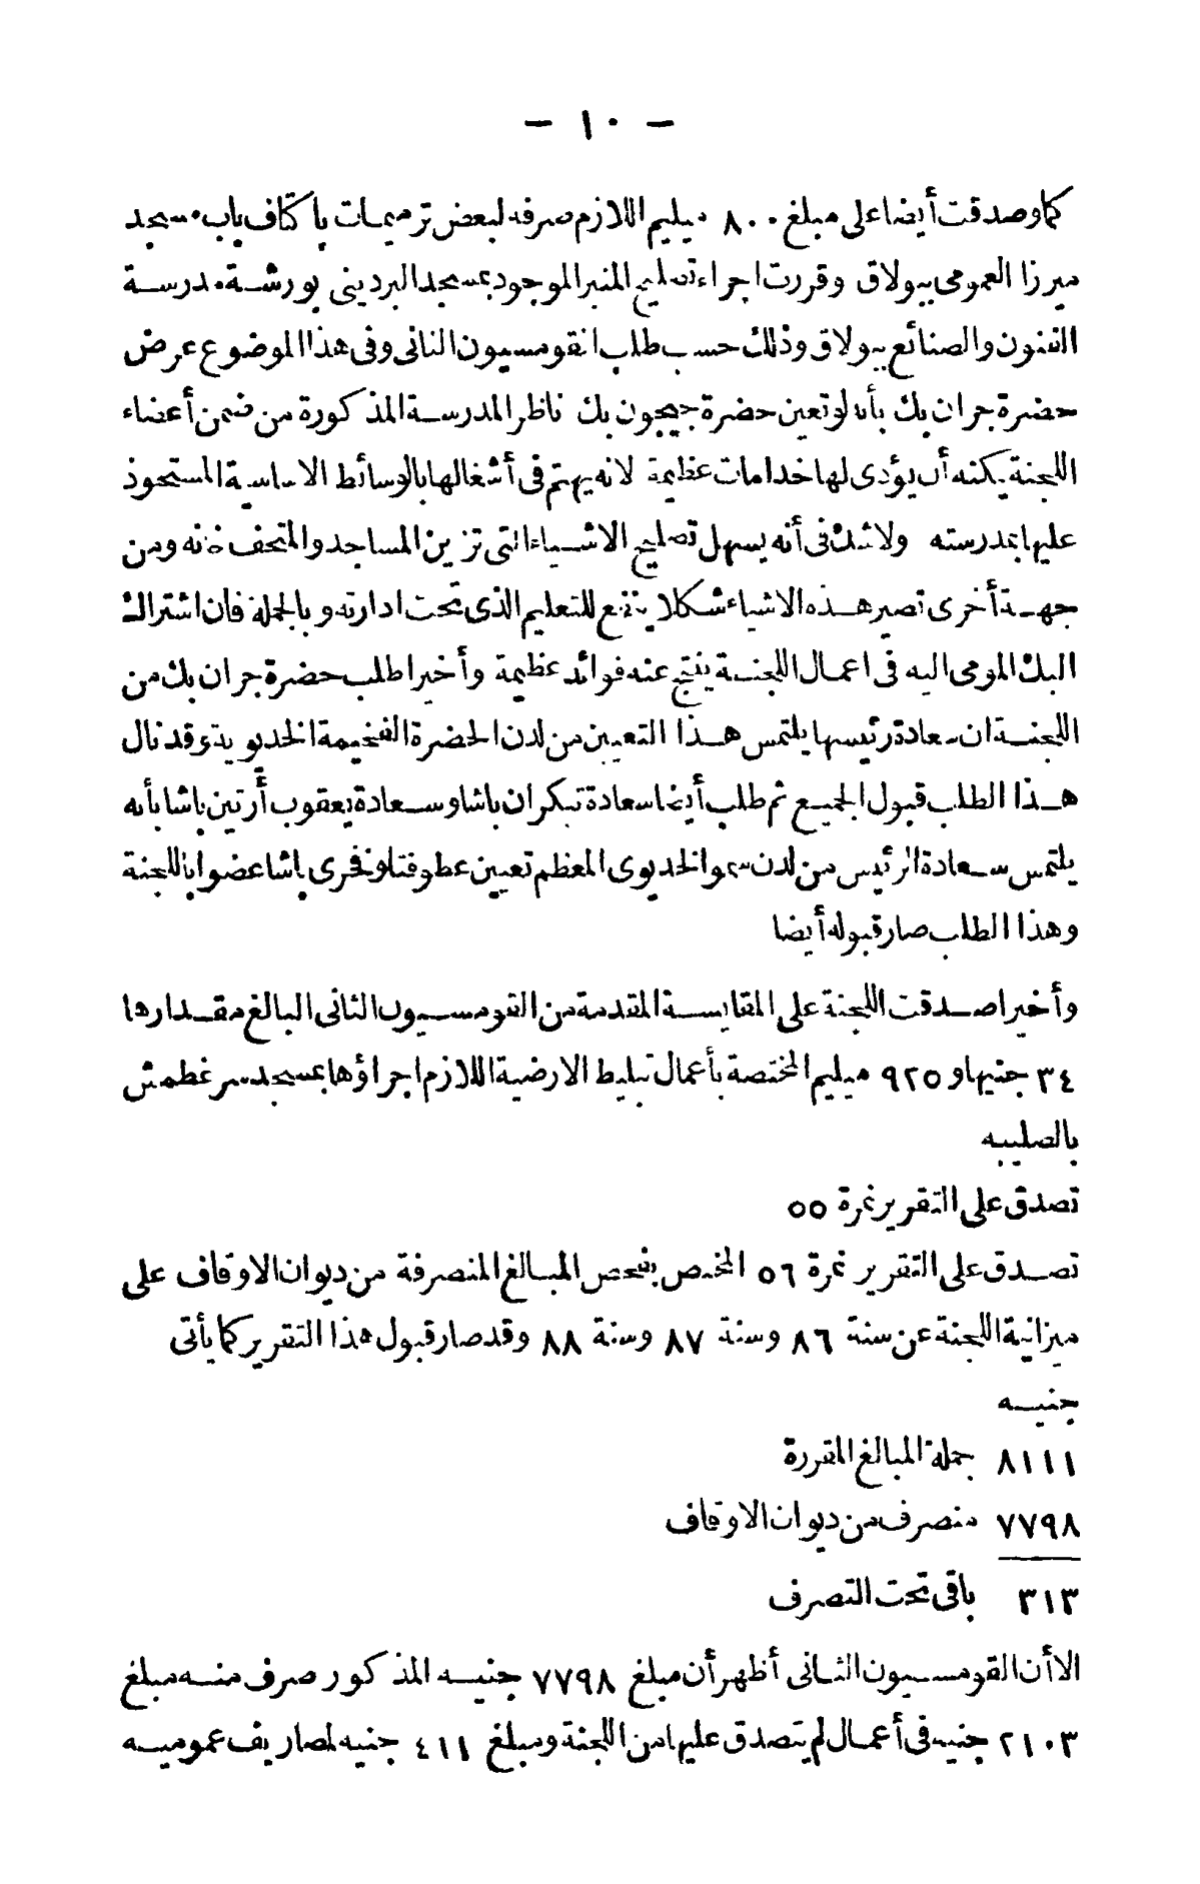 — ١٠ —
كما وصدقت أيضا على مبلغ ٨٠٠ ميليم اللازم صرفه لبعض ترميمات باكتاف باب مسجد
ميرزا العمومى ببولاق وقررت اجراء تصليح المنبر الموجود بمسجد البردينى بورشة مدرسة
الفنون والصنائع ببولاق وذلك حسب طلب القومسيون الثانى وفى هذا الموضوع عرض
حضرة جران بك بأنه لو تعين حضرة جيجون بك ناظر المدرسة المذكورة من ضمن أعضاء
اللجنة يمكنه أن يؤدى لها خدامات عظيمة لانه يهتم فى أشغالها بالوسائط الاساسية المستحوذ
عليها بمدرسته ولاشك فى أنه يسهل تصليح الاشياء التى تزين المساجد والمتحف خانه ومن
جهة أخرى تصير هذه الاشياء شكلا ينفع للتعليم الذى تحت ادارته وبالجملة فان اشتراك
البك المومى اليه فى اعمال اللجنة ينتج عنه فوائد عظيمة وأخيرا طلب حضرة جران بك من
اللجنة ان سعادة رئيسها يلتمس هذا التعيين من لدن الحضرة الفخيمة الخديوية وقد نال
هذا الطلب قبول الجميع ثم طلب أيضا سعادة تيكران باشا وسعادة يعقوب أرتين باشا بأنه
يلتمس سعادة الرئيس من لدن سمو الخديوى المعظم تعيين عطوفتلو فخرى باشا عضوا باللجنة
وهذا الطلب صار قبوله أيضا
وأخيرا صدقت اللجنة على المقايسة المقدمة من القومسيون الثانى البالغ مقدارها
٣٤ جنيها و ٩٢٥ ميليم المختصة بأعمال تبليط الارضية اللازم اجراؤها بمسجد سرغطمش
بالصليبه
تصدق على التقرير نمرة ٥٥
تصدق على التقرير نمرة ٥٦ المختص بفحص المبالغ المنصرفة من ديوان الاوقاف على
ميزانية اللجنة عن سنة ٨٦ وسنة ٨٧ وسنة ٨٨ وقد صار قبول هذا التقرير كما يأتى
جنيه
٨١١١ جملة المبالغ المقررة
٧٧٩٨ منصرف من ديوان الاوقاف
٣١٣ باقى تحت التصرف
الا أن القومسيون الثانى أظهر أن مبلغ ٧٧٩٨ جنيه المذكور صرف منه مبلغ
٢١٠٣ جنيه فى أعمال لم يتصدق عليها من اللجنة ومبلغ ٤١١ جنيه لمصاريف عموميه